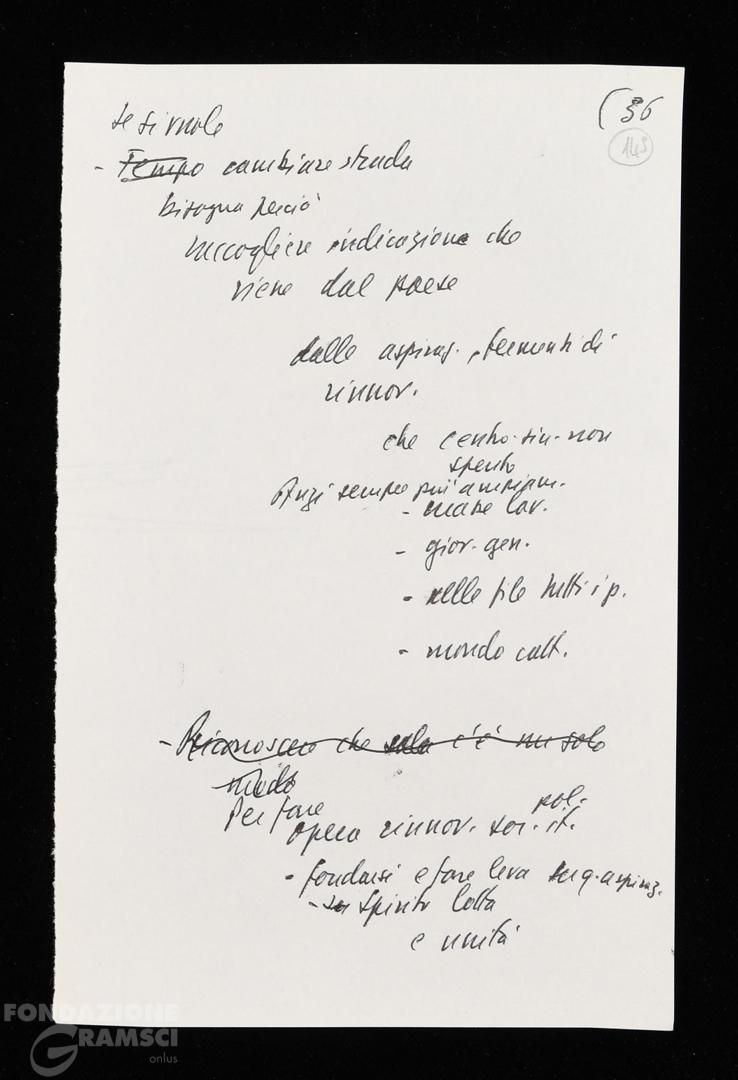 (36
143
se si vuole
- Tempo cambiare strada
bisogna perciò
raccogliere indicazione che
viene dal paese
dalle aspiraz., fermenti di
rinnov.
che centro-sin. non
spento
Anzi sempre più ampiam.
- masse lav.
- giov. gen.
- nelle file tutti i p.
- mondo cult.
- Riconoscere che solo c'è un solo
modo
Per fare
pol.
opera rinnov. soc. it.
- fondarsi e fare leva su q. aspiraz.
- su spirito lotta
e unità
FONDAZIONE
GRAMSCI
onlus